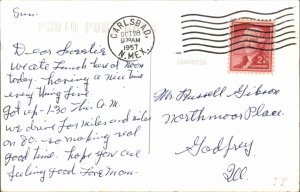 Sun.
PHOTO POST
CARLSBAD,
OCT 28
AM
1957
N. MEX.
ADDRESS
2¢
Dear
we ate lunch here at noon
today. having a nice time
every thing fine
got up 1-30 this A.M.
we drove for miles and miles
on so making real
good time. hope you are
feeling good Love Mom.
Mr Russell Gibson
Northmoor Place.
Godfrey
Ill.